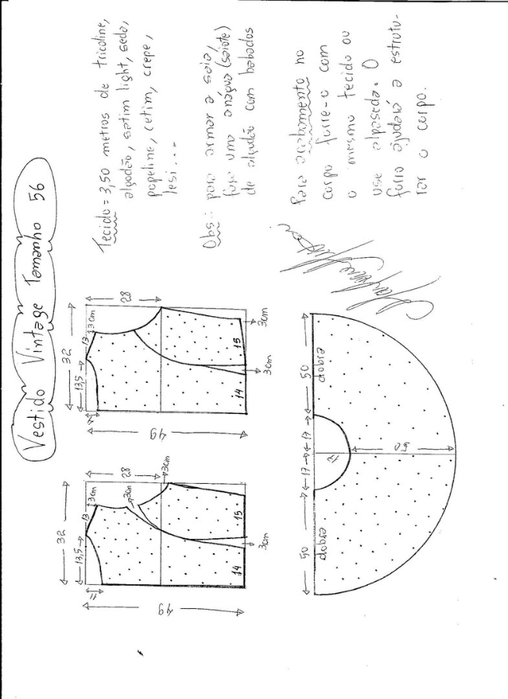 Vestido Vintage Tamanho 56
Tecido = 3,50 metros de tricoline,
algodão, setim light, seda,
popeline, cetim, crepe,
lesi....
Obs.: para armar a saia,
faça uma anágua (saiote)
de algodão com babados
Para acabamento no
corpo forre-o com
o mesmo tecido ou
use alpaseda. O
forro ajudará a estrutu-
rar o corpo.
32
13,5
13
3cm
28
49
14
15
3cm
3cm
32
13,5
13
3cm
28
3cm
2cm
11
49
14
15
3cm
50
17
17
50
dobra
dobra
17
50